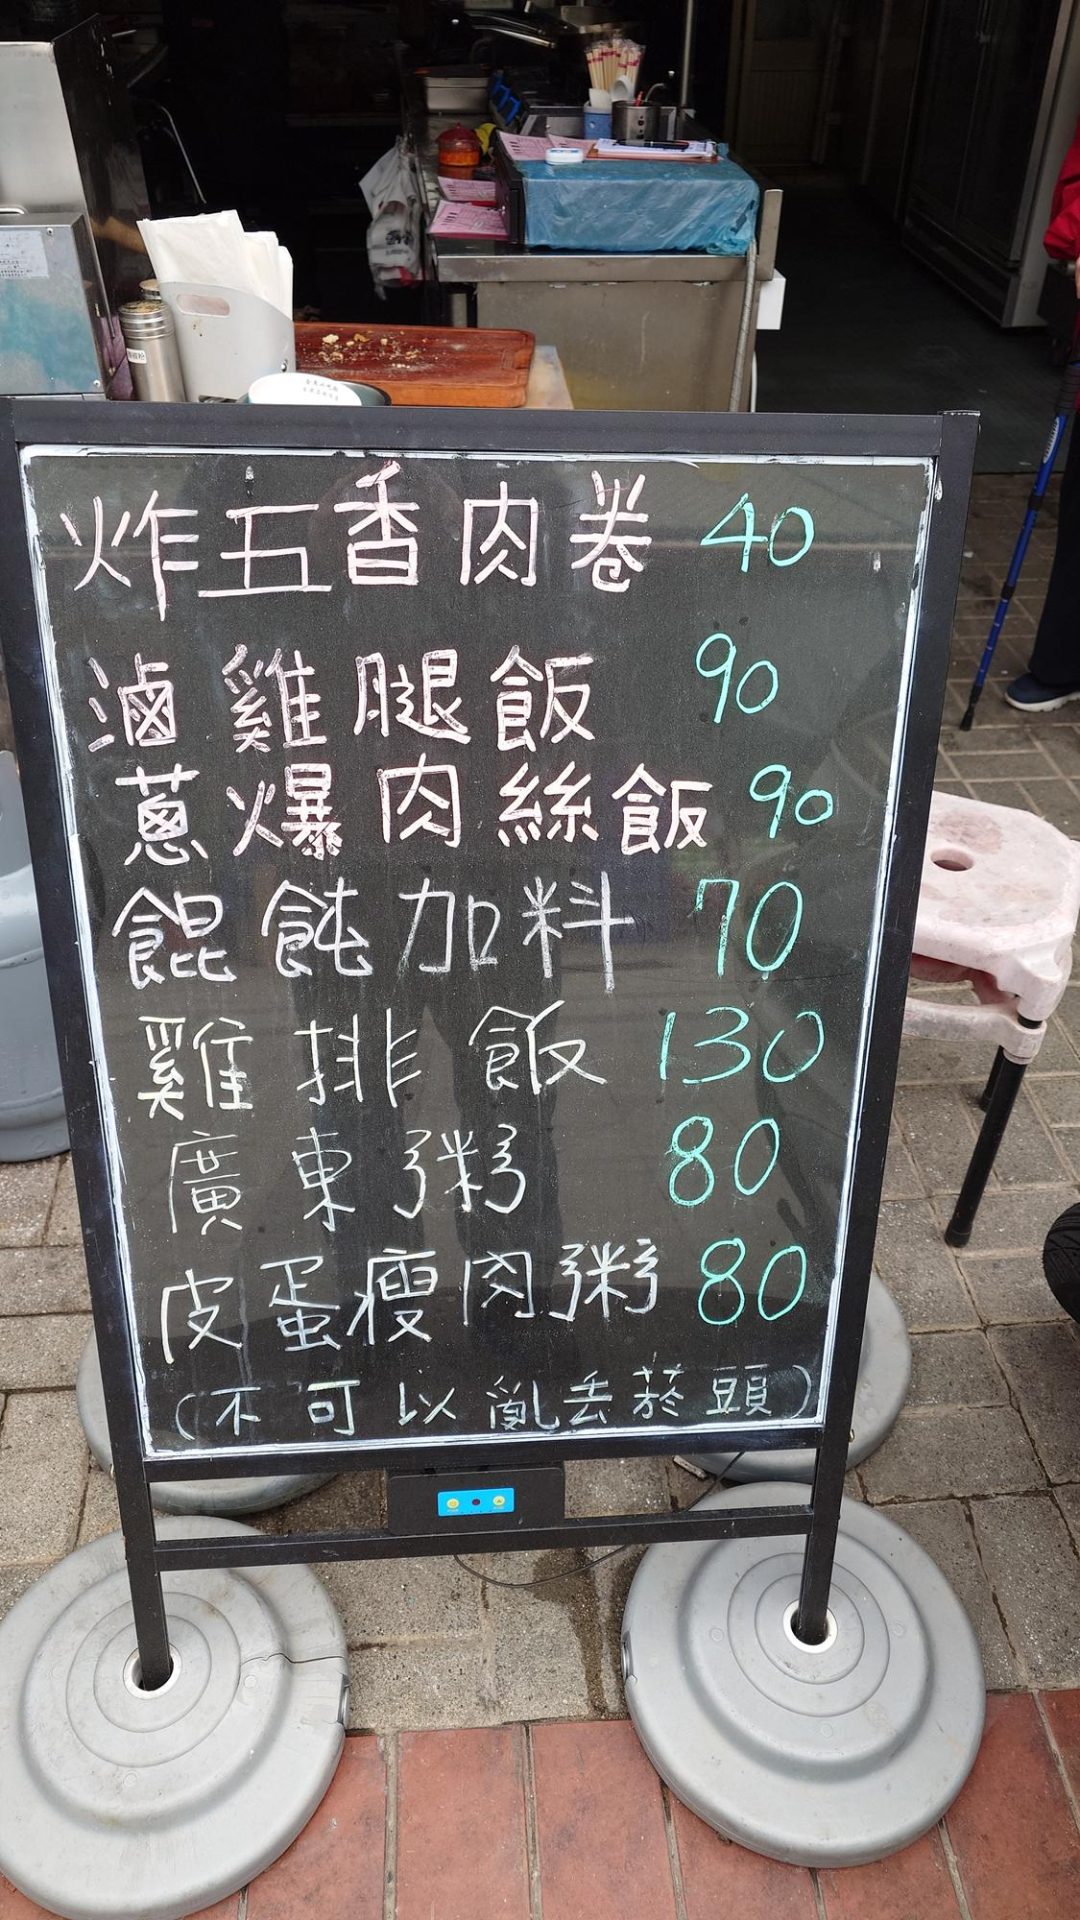 炸五香肉卷 40
滷雞腿飯 90
蔥爆肉絲飯 90
餛飩加料 70
雞排飯 130
廣東粥 80
皮蛋瘦肉粥 80
(不可以亂丟菸頭)